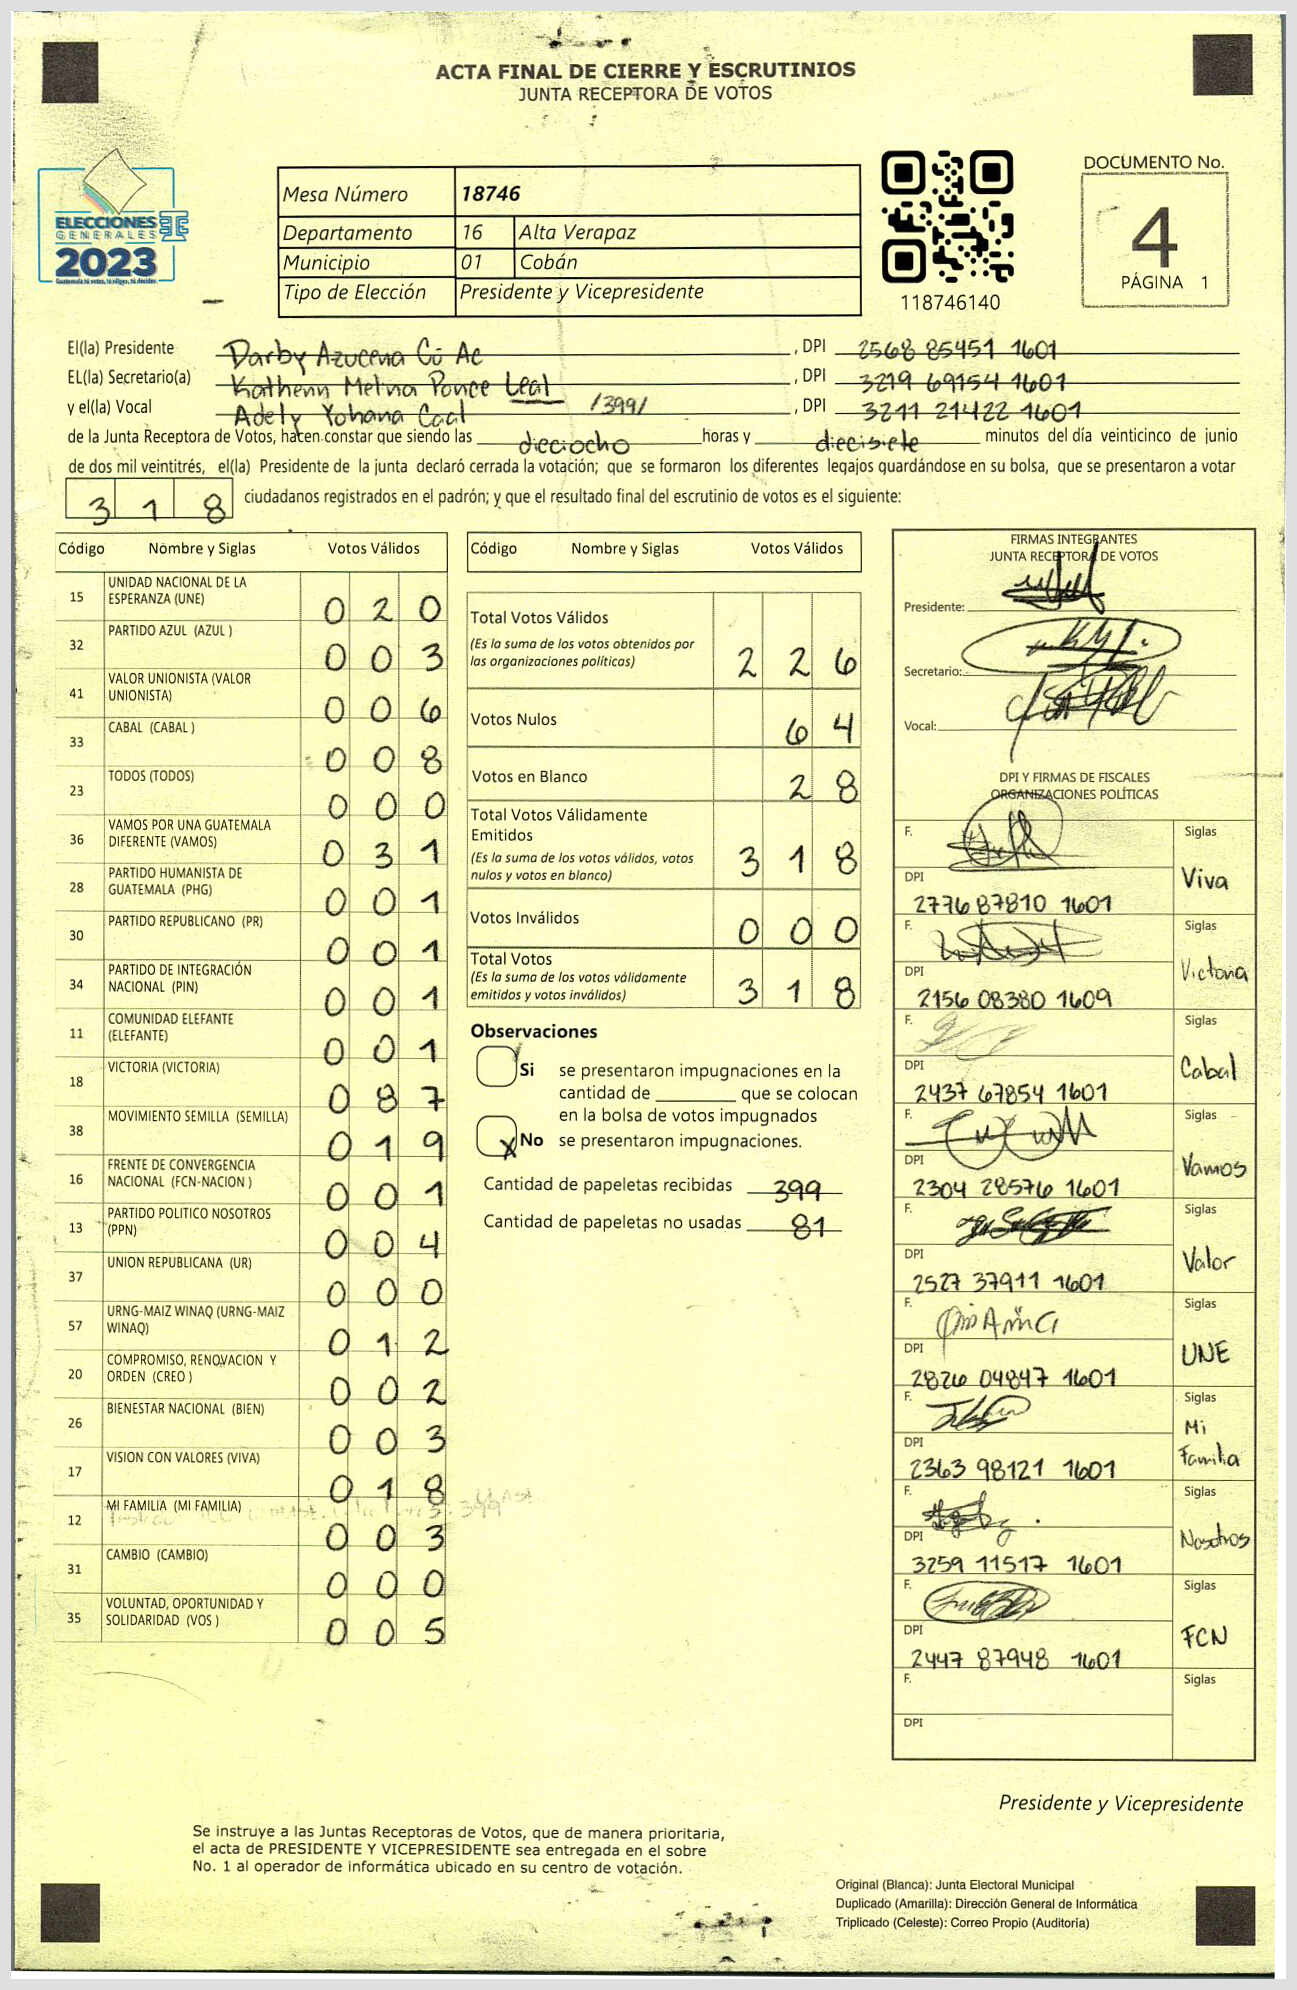 ACTA FINAL DE CIERRE Y ESCRUTINIOS
JUNTA RECEPTORA DE VOTOS
ELECCIONES
GENERALES
2023
Guatemala tú votas, tú eliges, tú decides
Mesa Número 18746
Departamento 16 Alta Verapaz
Municipio 01 Cobán
Tipo de Elección Presidente y Vicepresidente
118746140
DOCUMENTO No.
4
PÁGINA 1
El(la) Presidente Darby Azucena Có Ac , DPI 2568 85451 1601
EL(la) Secretario(a) Katherin Melina Ponce Leal , DPI 3219 69154 1601
y el(la) Vocal Adely Yohana Caal /399/ , DPI 3211 21422 1601
de la Junta Receptora de Votos, hacen constar que siendo las dieciocho horas y diecisiete minutos del día veinticinco de junio
de dos mil veintitrés, el(la) Presidente de la junta declaró cerrada la votación; que se formaron los diferentes legajos guardándose en su bolsa, que se presentaron a votar
318 ciudadanos registrados en el padrón; y que el resultado final del escrutinio de votos es el siguiente:
Código Nombre y Siglas Votos Válidos
15 UNIDAD NACIONAL DE LA
ESPERANZA (UNE) 0 2 0
32 PARTIDO AZUL (AZUL ) 0 0 3
41 VALOR UNIONISTA (VALOR
UNIONISTA) 0 0 6
33 CABAL (CABAL ) 0 0 8
23 TODOS (TODOS) 0 0 0
36 VAMOS POR UNA GUATEMALA
DIFERENTE (VAMOS) 0 3 1
28 PARTIDO HUMANISTA DE
GUATEMALA (PHG) 0 0 1
30 PARTIDO REPUBLICANO (PR) 0 0 1
34 PARTIDO DE INTEGRACIÓN
NACIONAL (PIN) 0 0 1
11 COMUNIDAD ELEFANTE
(ELEFANTE) 0 0 1
18 VICTORIA (VICTORIA) 0 8 7
38 MOVIMIENTO SEMILLA (SEMILLA) 0 1 9
16 FRENTE DE CONVERGENCIA
NACIONAL (FCN-NACION ) 0 0 1
13 PARTIDO POLITICO NOSOTROS
(PPN) 0 0 4
37 UNION REPUBLICANA (UR) 0 0 0
57 URNG-MAIZ WINAQ (URNG-MAIZ
WINAQ) 0 1 2
20 COMPROMISO, RENOVACION Y
ORDEN (CREO ) 0 0 2
26 BIENESTAR NACIONAL (BIEN) 0 0 3
17 VISION CON VALORES (VIVA) 0 1 8
12 MI FAMILIA (MI FAMILIA) 0 0 3
31 CAMBIO (CAMBIO) 0 0 0
35 VOLUNTAD, OPORTUNIDAD Y
SOLIDARIDAD (VOS ) 0 0 5
Código Nombre y Siglas Votos Válidos
Total Votos Válidos
(Es la suma de los votos obtenidos por
las organizaciones políticas) 2 2 6
Votos Nulos 6 4
Votos en Blanco 2 8
Total Votos Válidamente
Emitidos
(Es la suma de los votos válidos, votos
nulos y votos en blanco) 3 1 8
Votos Inválidos 0 0 0
Total Votos
(Es la suma de los votos válidamente
emitidos y votos inválidos) 3 1 8
Observaciones
Si se presentaron impugnaciones en la
cantidad de ________ que se colocan
en la bolsa de votos impugnados
X No se presentaron impugnaciones.
Cantidad de papeletas recibidas 399
Cantidad de papeletas no usadas 81
FIRMAS INTEGRANTES
JUNTA RECEPTORA DE VOTOS
Presidente:
Secretario:
Vocal:
DPI Y FIRMAS DE FISCALES
ORGANIZACIONES POLÍTICAS
F. Siglas
DPI Viva
2776 87810 1601
F. Siglas
DPI Victoria
2156 08380 1609
F. Siglas
DPI Cabal
2437 67854 1601
F. Siglas
DPI Vamos
2304 28576 1601
F. Siglas
DPI Valor
2527 37911 1601
F. Siglas
DPI UNE
2826 04847 1601
F. Siglas
Mi
DPI Familia
2363 98121 1601
F. Siglas
DPI Nosotros
3259 11517 1601
F. Siglas
DPI FCN
2447 87948 1601
F. Siglas
DPI
Presidente y Vicepresidente
Se instruye a las Juntas Receptoras de Votos, que de manera prioritaria,
el acta de PRESIDENTE Y VICEPRESIDENTE sea entregada en el sobre
No. 1 al operador de informática ubicado en su centro de votación.
Original (Blanca): Junta Electoral Municipal
Duplicado (Amarilla): Dirección General de Informática
Triplicado (Celeste): Correo Propio (Auditoría)